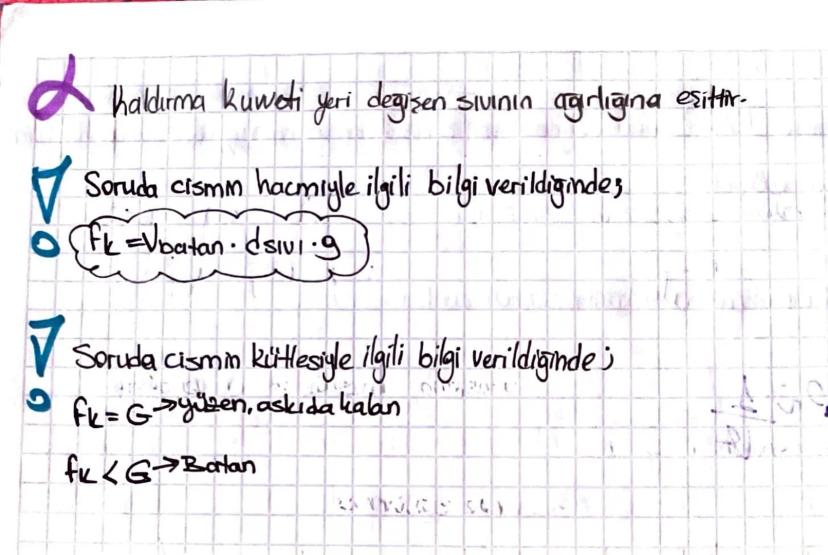 Kaldırma kuvveti yeri değişen sıvının ağırlığına eşittir.
Soruda cismin hacmiyle ilgili bilgi verildiğinde;
fk = Vbatan · dsıvı · g
Soruda cismin kütlesiyle ilgili bilgi verildiğinde;
fk = G → yüzen, askıda kalan
fk < G → Batan